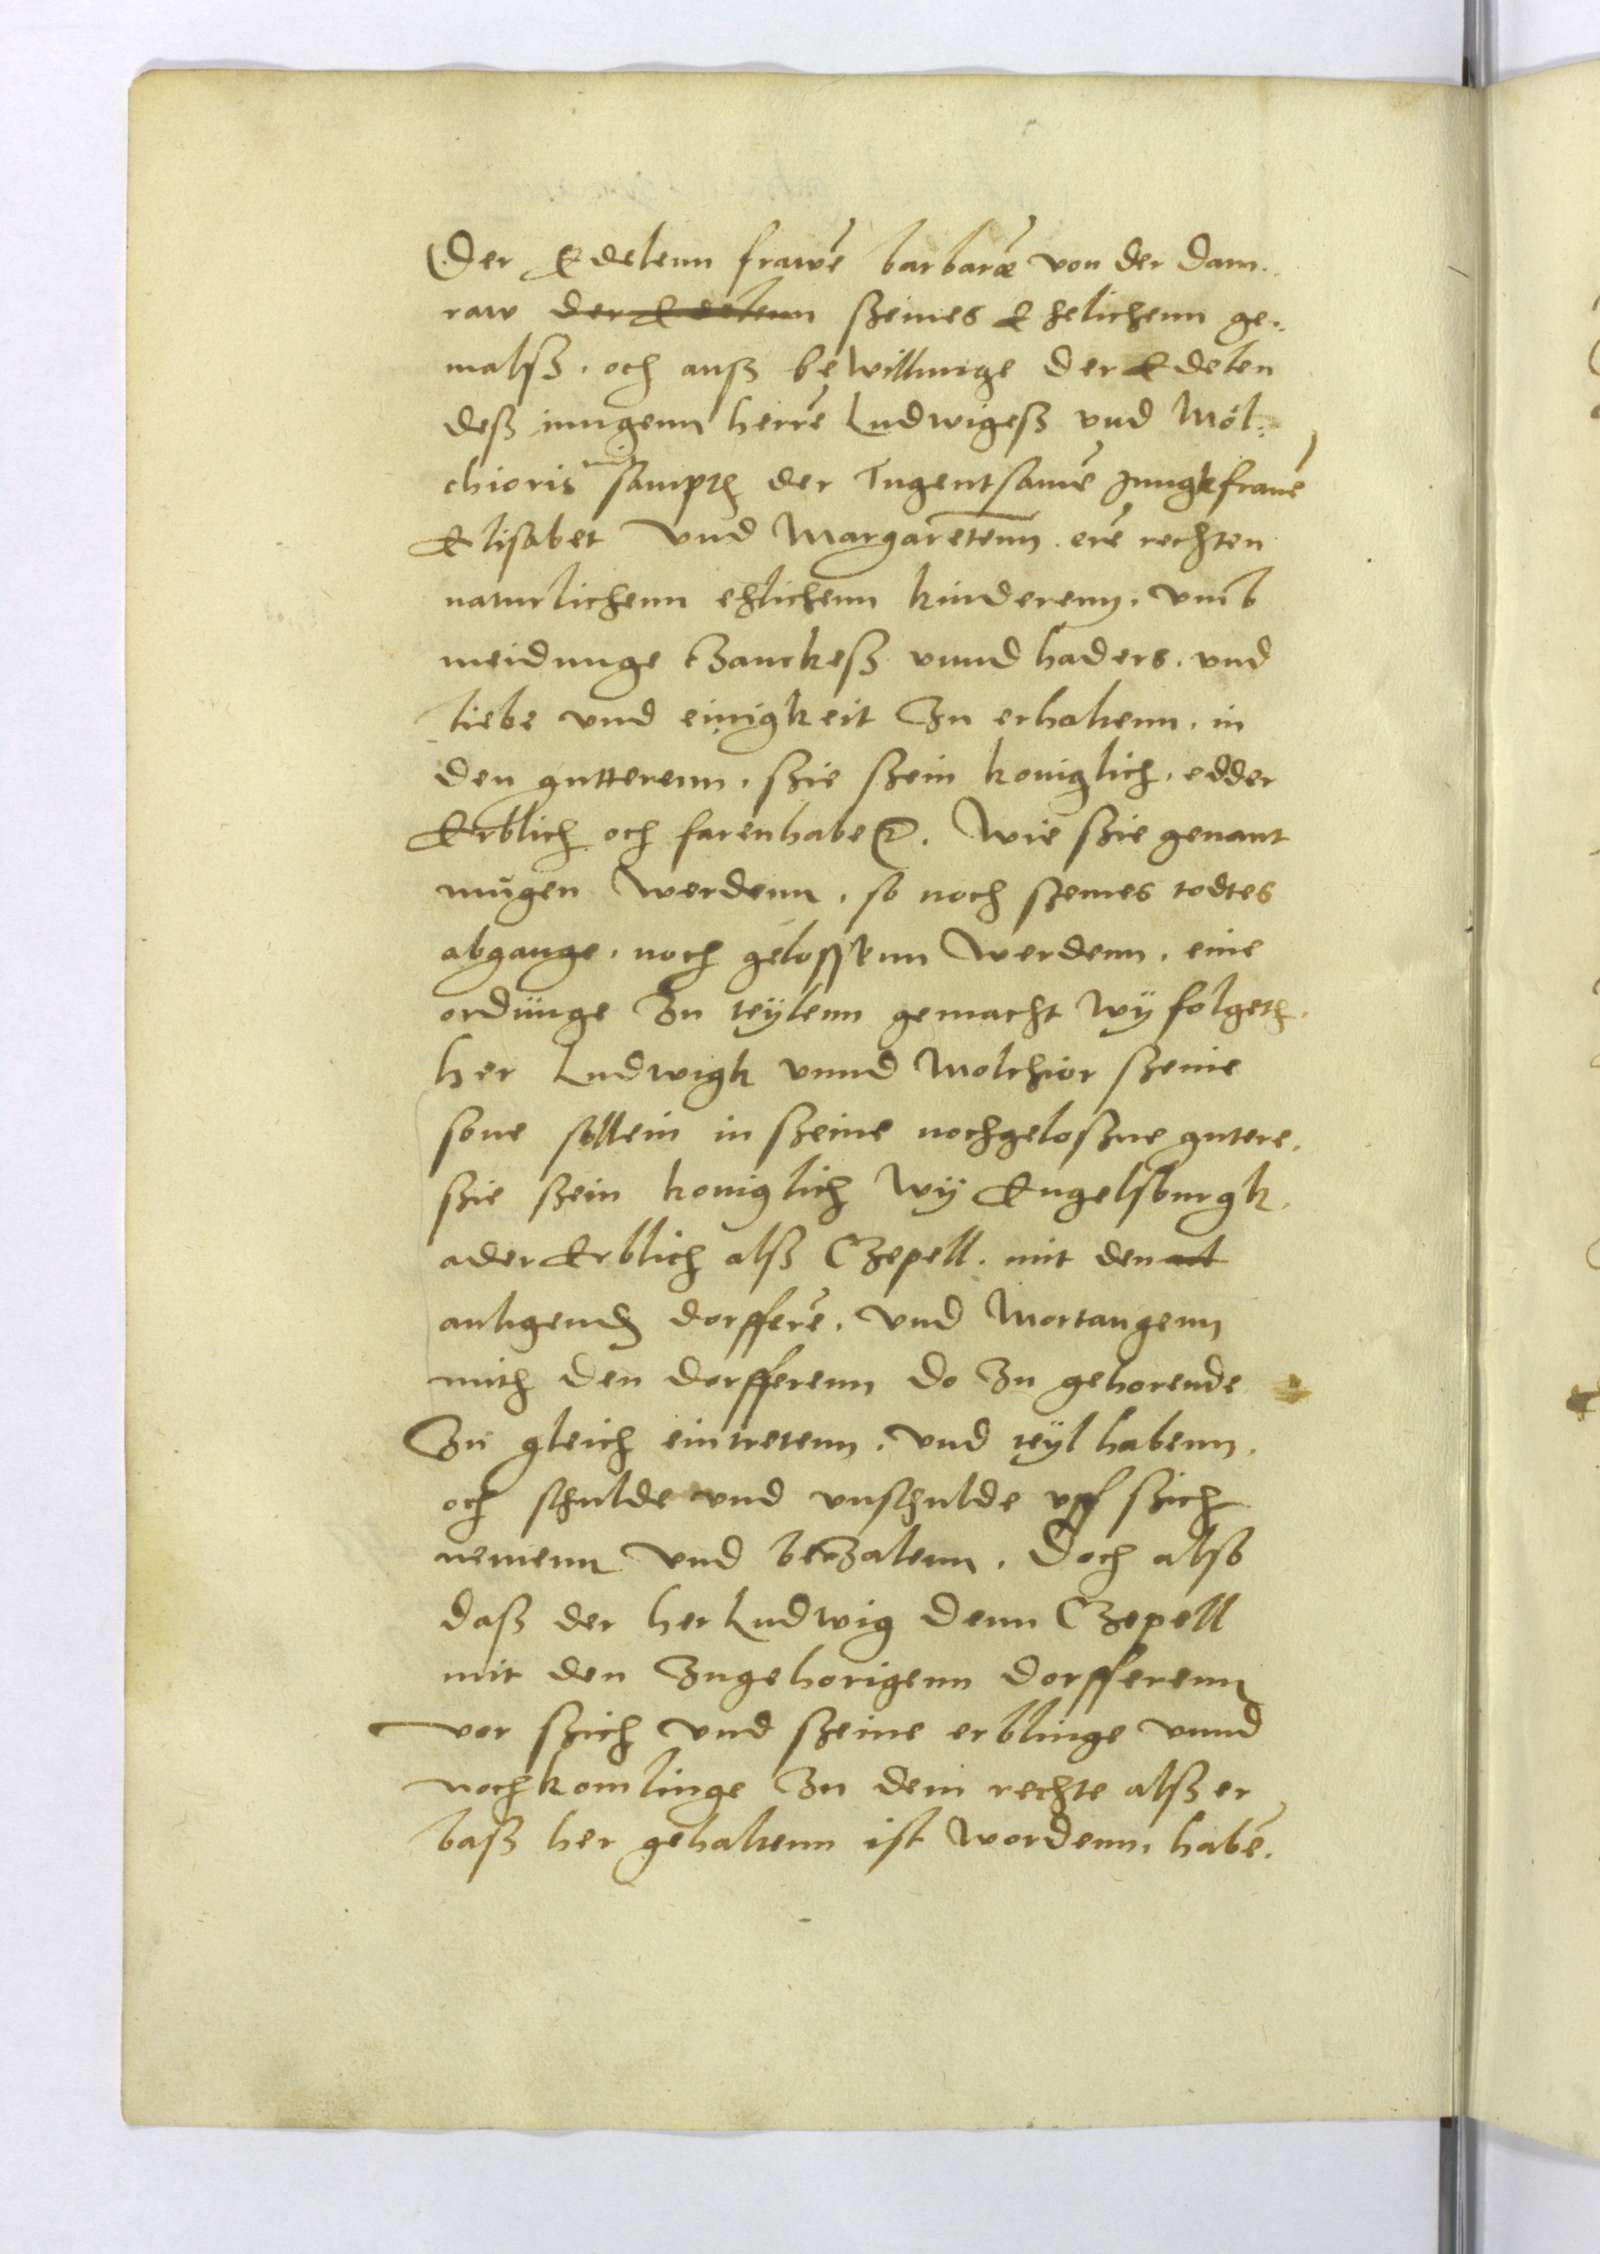 Der Edelenn frawē barbaræ von der Dam„
raw der Edelenn szeines Ehelichenn ge„
malsz. och ausz bewillunge der Edelen
desz jungenn herrē Ludwigesz vnd Mol„
chioris sampth der Tugentsamē Jungkfrauē
Elisabet vnd Margaretenn. erē rechten
naturlichenn ehlichenn kinderenn. vmb
meidunge tzanckesz vnnd haders. vnd
liebe vnd einigkeit Zu erhaltenn. in
den gutterenn. szie szein koniglich. edder
Erblich och farenhabe etc. wie szie genant
mugen werdenn. so noch szeines todtes
abgange. noch gelossenn werdenn. eine
ordunge Zu teylenn gemacht wy folgeth.
her Ludwigk vnnd Molchior szeine
sone sollein in szeine nochgeloszne gutere.
szie szein koniglich wy Engelsburgk.
ader Erblich alsz Czepell. mit den
anligendn dorfferē. vnd Mortangenn
mith den dorfferenn do Zu gehorende
Zu gleich eintretenn. vnd teyl habenn.
och schulde vnd vnschulde vff szich
nemenn vnd beZalenn. Doch also
dasz der her Ludwig denn Czepell
mit den Zugehorigenn dorfferenn
vor szich vnd szeine erblinge vnnd
nochkomlinge Zu dem rechte alsz er
basz her gehaltenn ist wordenn. habē.